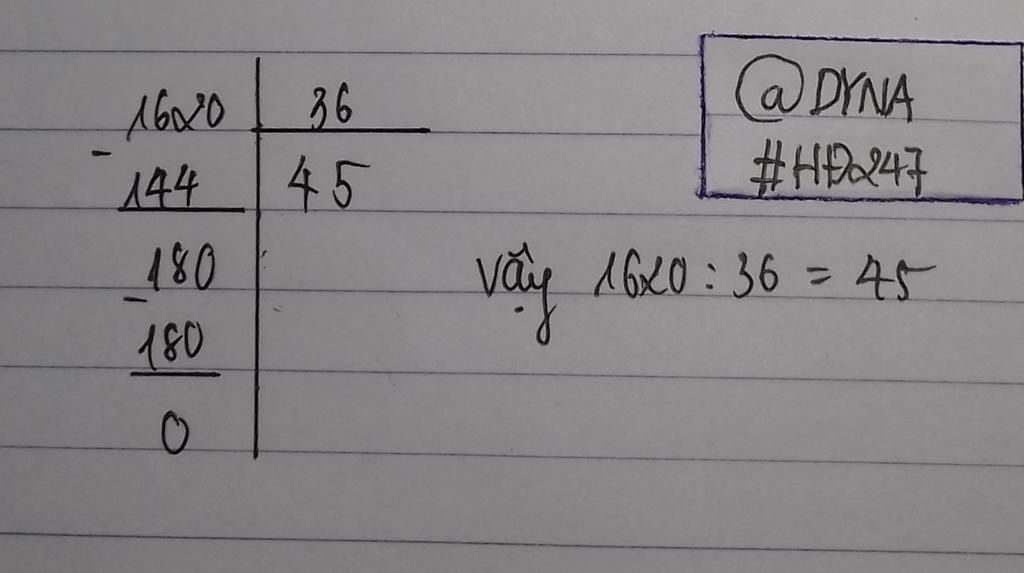 1620 36
- 144 45
- 180
180
0
Vậy 1620 : 36 = 45
@DYNA
#HĐ247